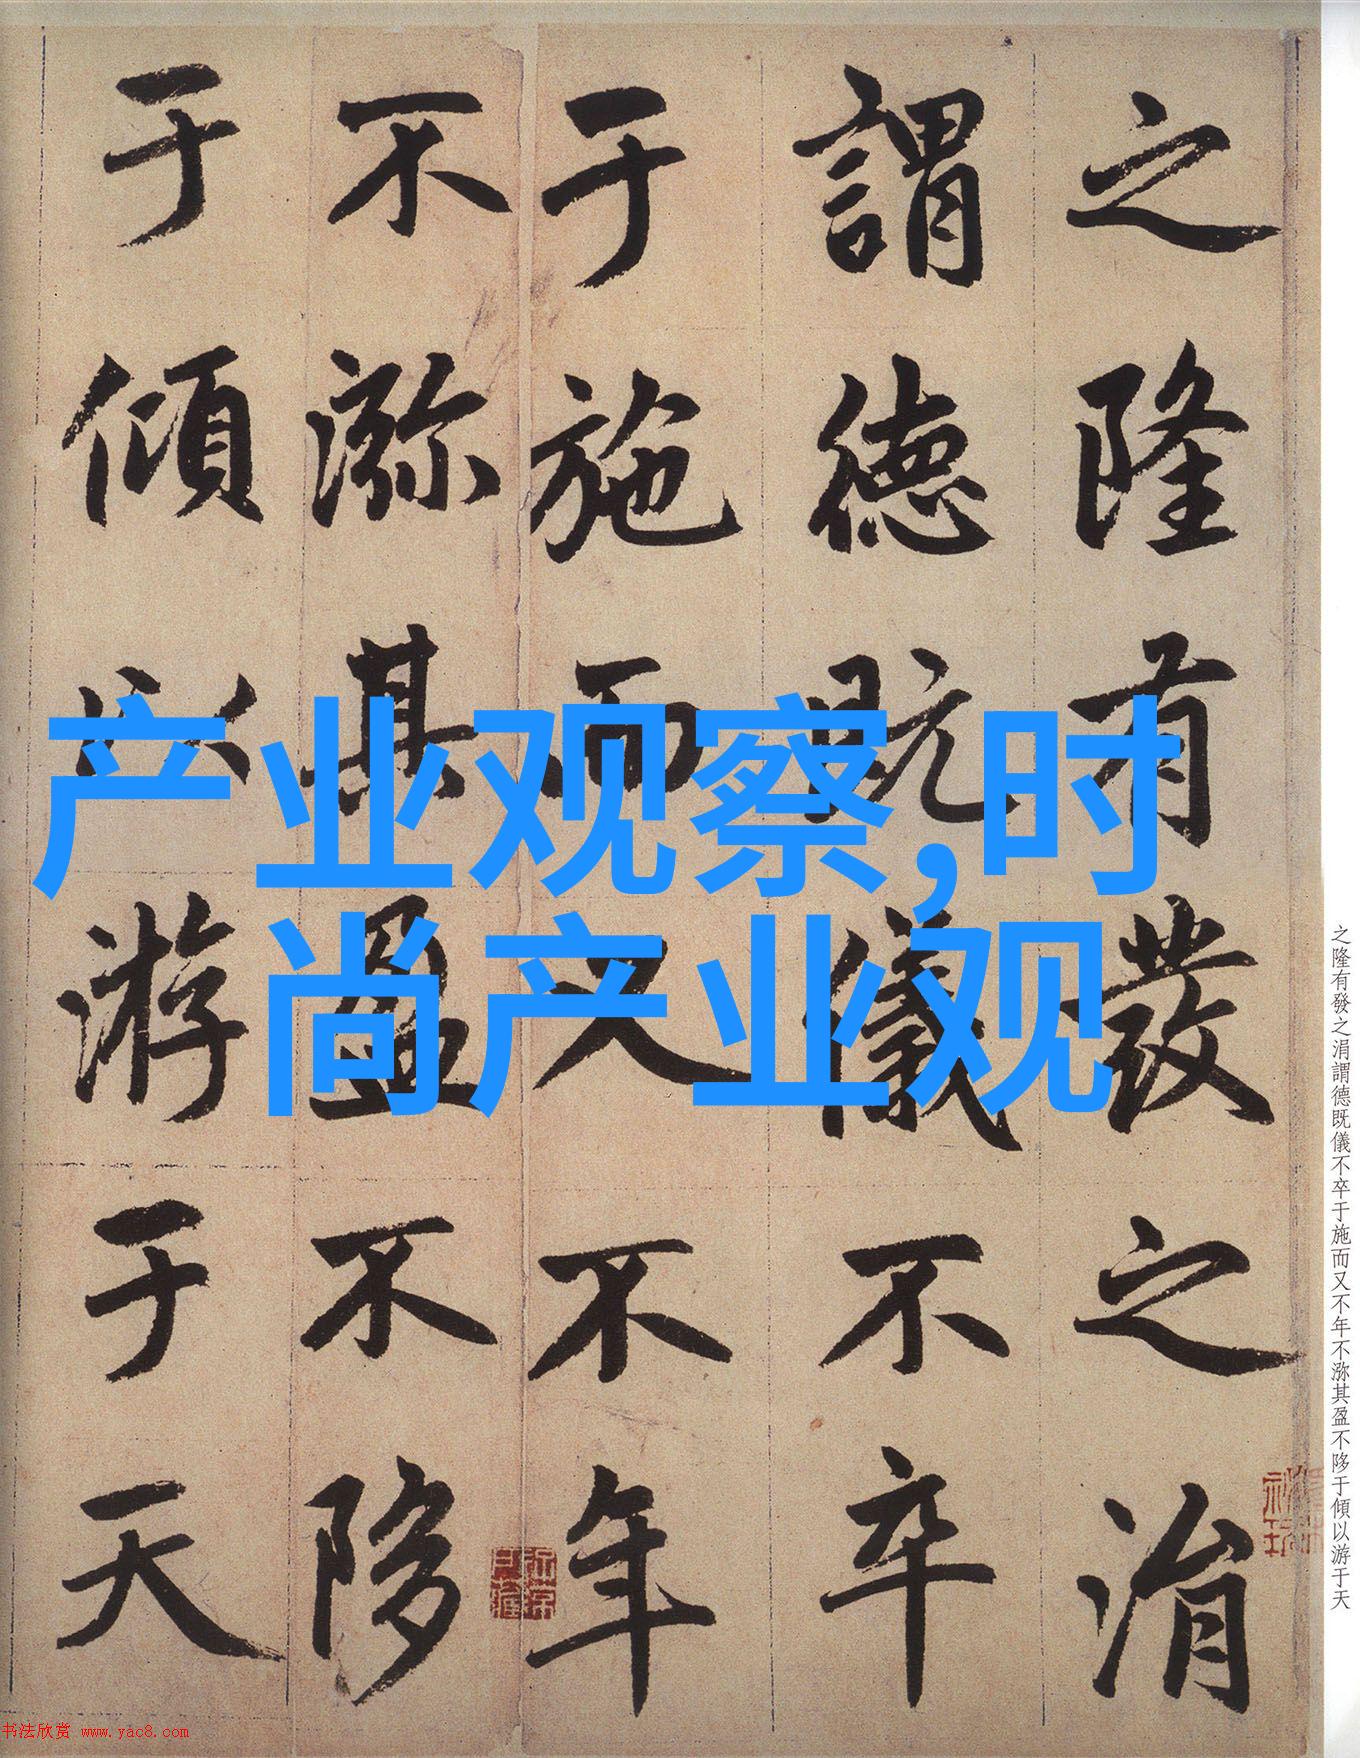 之隆有發之涓
謂德既儀不卒
于施而又不年
不游其盈不陊
于傾以游于天
产业观察,时
尚产业观
之隆有發之涓謂德既儀不卒于施而又不年不游其盈不陊于傾以游于天
书法欣赏 www.yac8.com